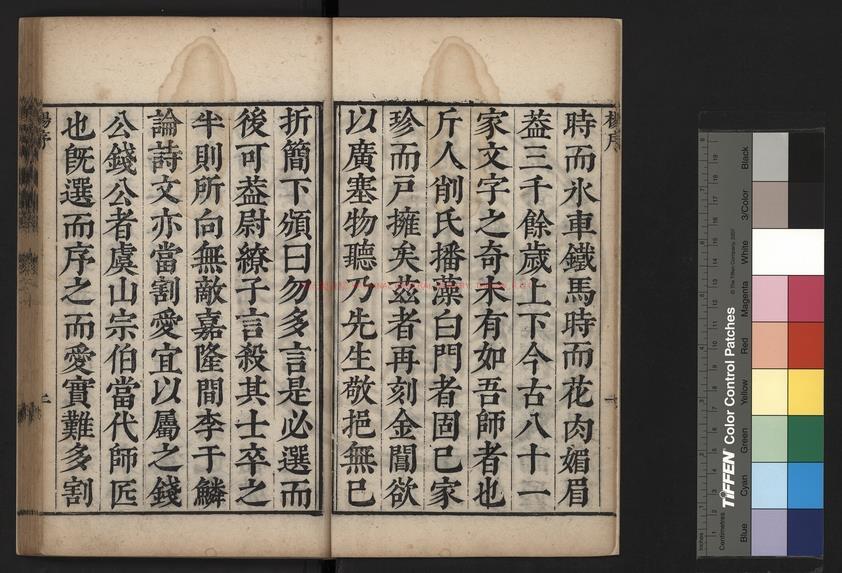 時而氷車鐵馬時而花肉媚眉
葢三千餘歲上下今古八十一
家文字之奇未有如吾師者也
斤人削氏播藻白門者固已家
珍而戸擁矣茲者再刻金閶欲
以廣塞物聽乃先生敬挹無已
折簡下頒曰勿多言是必選而
後可葢尉繚子言殺其士卒之
半則所向無敵嘉隆間李于鱗
論詩文亦當割愛宜以屬之錢
公錢公者虞山宗伯當代師匠
也旣選而序之而愛實難多割
二
TIFFEN Color Control Patches
© The Tiffen Company, 2007
Centimetres
Inches
Blue
Cyan
Green
Yellow
Red
Magenta
White
3/Color
Black